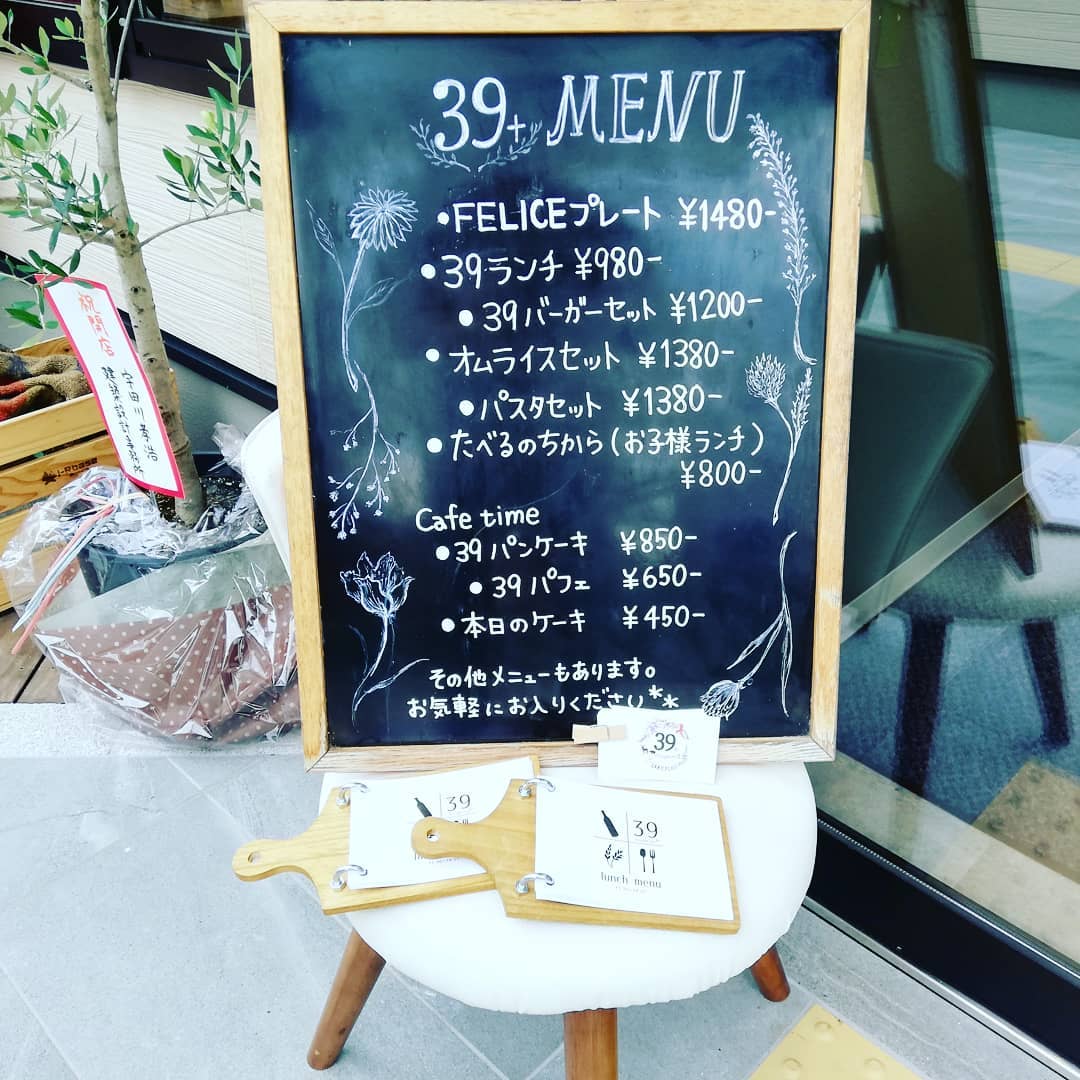 39+ MENU
•FELICEプレート ¥1480-
•39ランチ ¥980-
•39バーガーセット ¥1200-
•オムライスセット ¥1380-
•パスタセット ¥1380-
•たべるのちから(お子様ランチ)
¥800-
Cafe time
•39パンケーキ ¥850-
•39パフェ ¥650-
•本日のケーキ ¥450-
その他メニューもあります。
お気軽にお入りください**
祝開店
宇田川孝浩
建築設計事務所
39
39
39
lunch menu